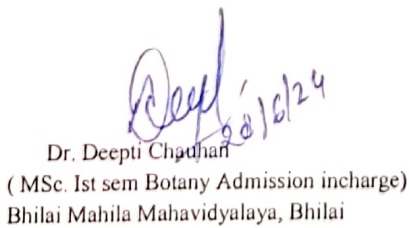 Deepti
20/6/24
Dr. Deepti Chauhan
( MSc. Ist sem Botany Admission incharge)
Bhilai Mahila Mahavidyalaya, Bhilai